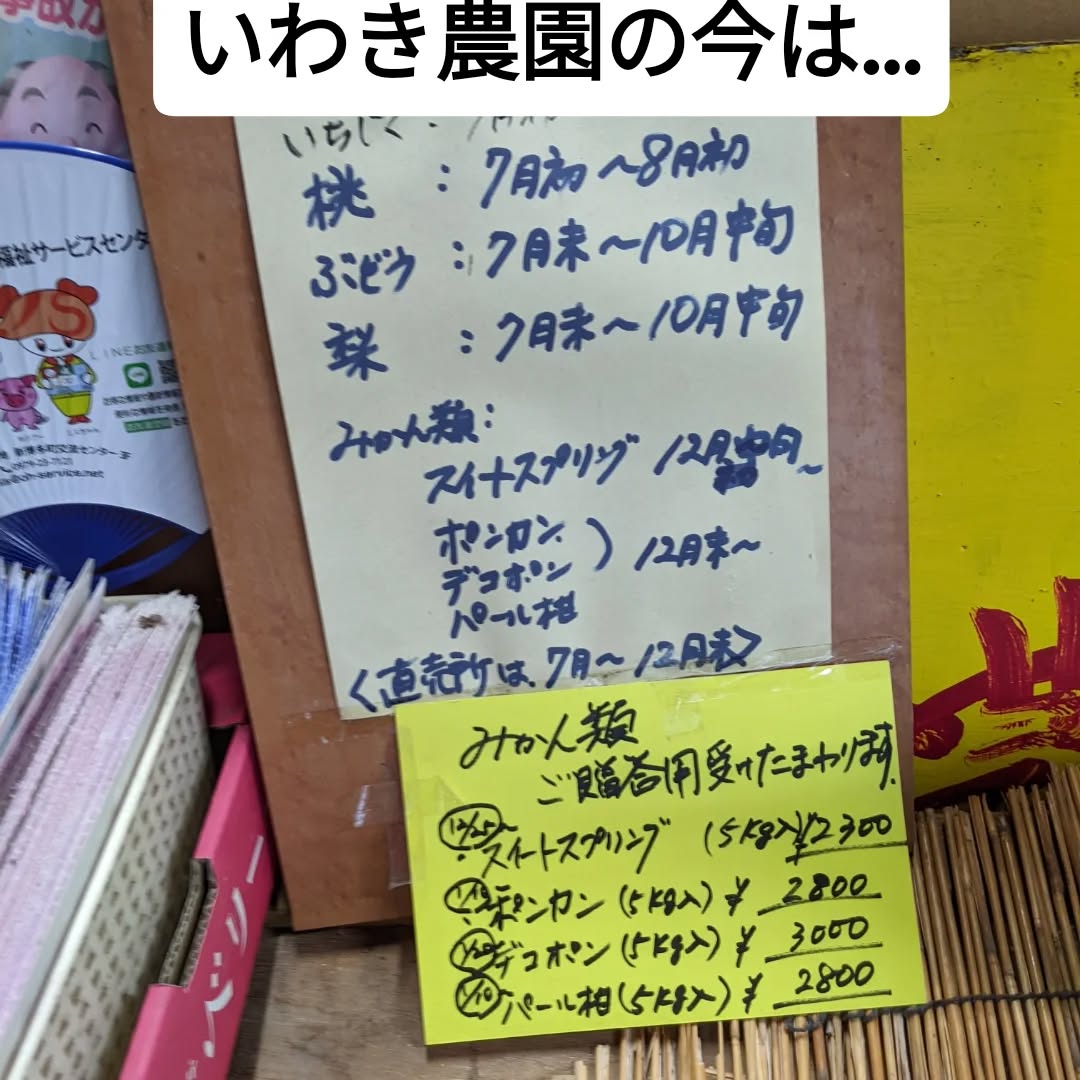 いわき農園の今は...
いちじく：7月
桃：7月初～8月初
ぶどう：7月末～10月中旬
梨：7月末～10月中旬
みかん類：
スイートスプリング 12月中旬～
ポンカン
デコポン ) 12月末～
パール柑
<直売所は、7月～12月末>
みかん類
ご贈答用受けたまわります。
12/25～ スイートスプリング (5kg入)¥2300
ポンカン(5kg入)¥2800
デコポン(5kg入)¥3000
1/10～ パール柑(5kg入)¥2800
福祉サービスセンタ
LINE
新博多町交流センター